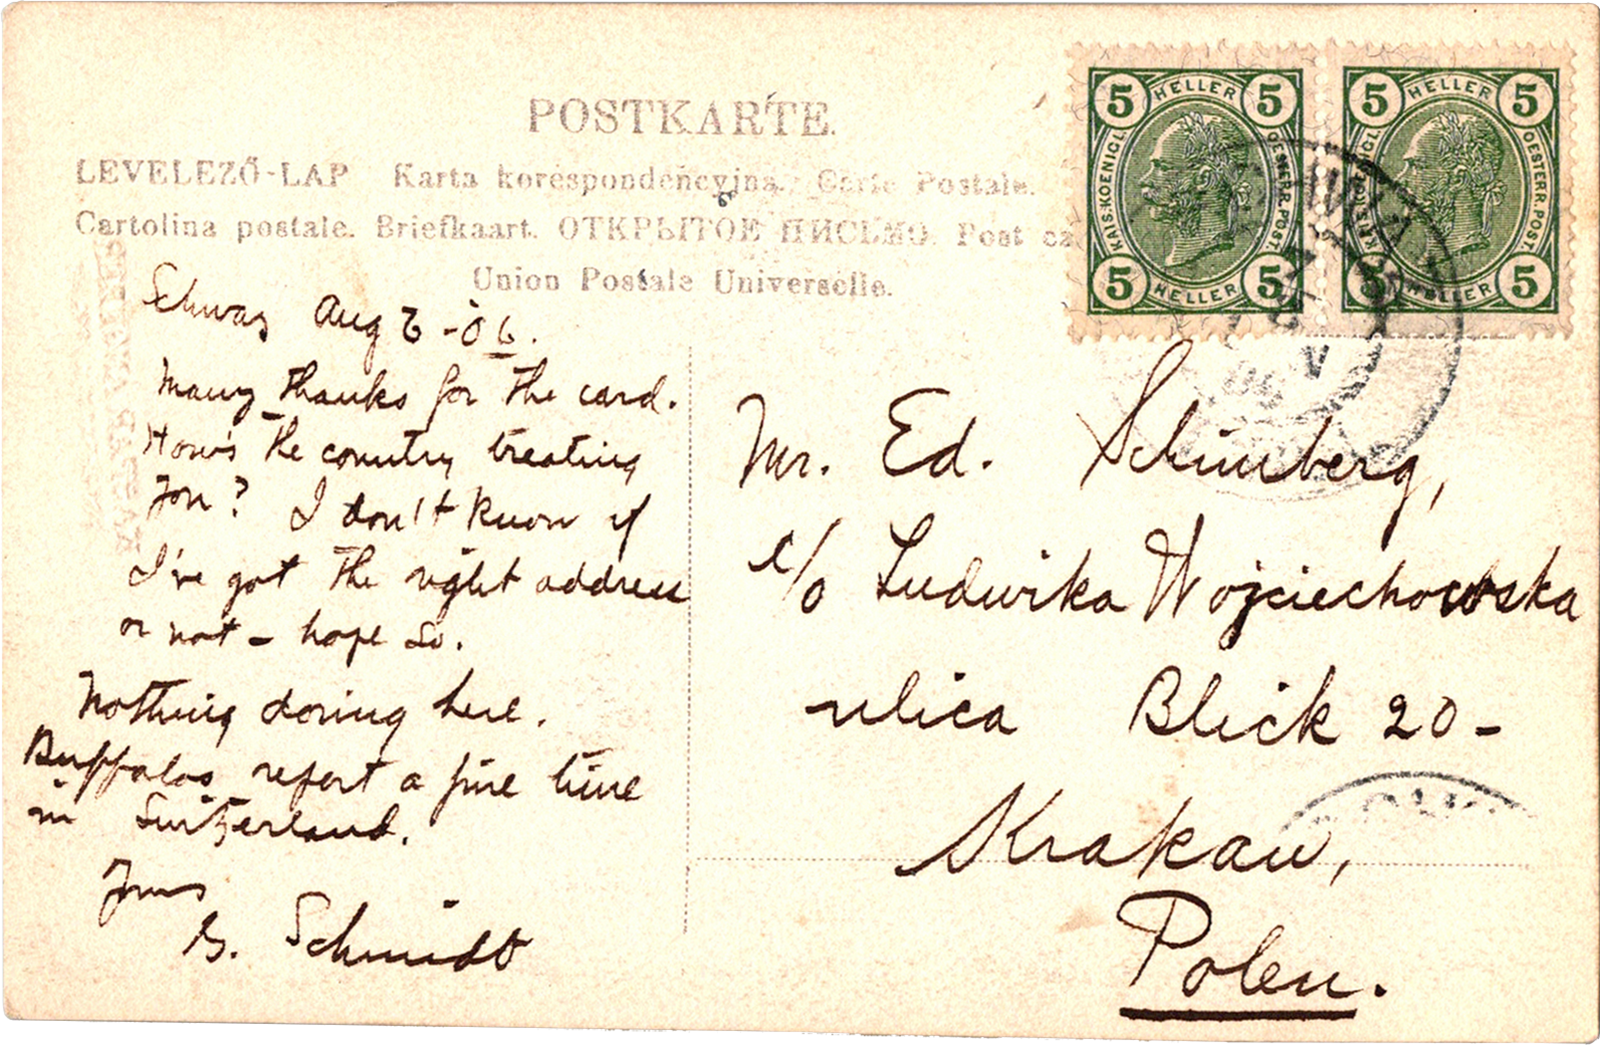 POSTKARTE.
LEVELEZŐ-LAP Karta korespondencyjna. Carte Postale.
Cartolina postale. Briefkaart. ОТКРЫТОЕ ПИСЬМО. Post ca
Union Postale Universelle.
5 HELLER 5
KAIS. KOENIGL. OESTERR. POST.
5 HELLER 5
5 HELLER 5
KAIS. KOENIGL. OESTERR. POST.
5 HELLER 5
Schwaz Aug 6 - 06.
Many thanks for the card.
How's the country treating
you? I don't know if
I've got the right address
or not – hope so.
Nothing doing here.
Buffalos report a fine time
in Switzerland.
Yours
G. Schmidt
Mr. Ed. Schinberg,
c/o Ludwika Wojciechowska
ulica Blick 20 –
Krakau,
Polen.